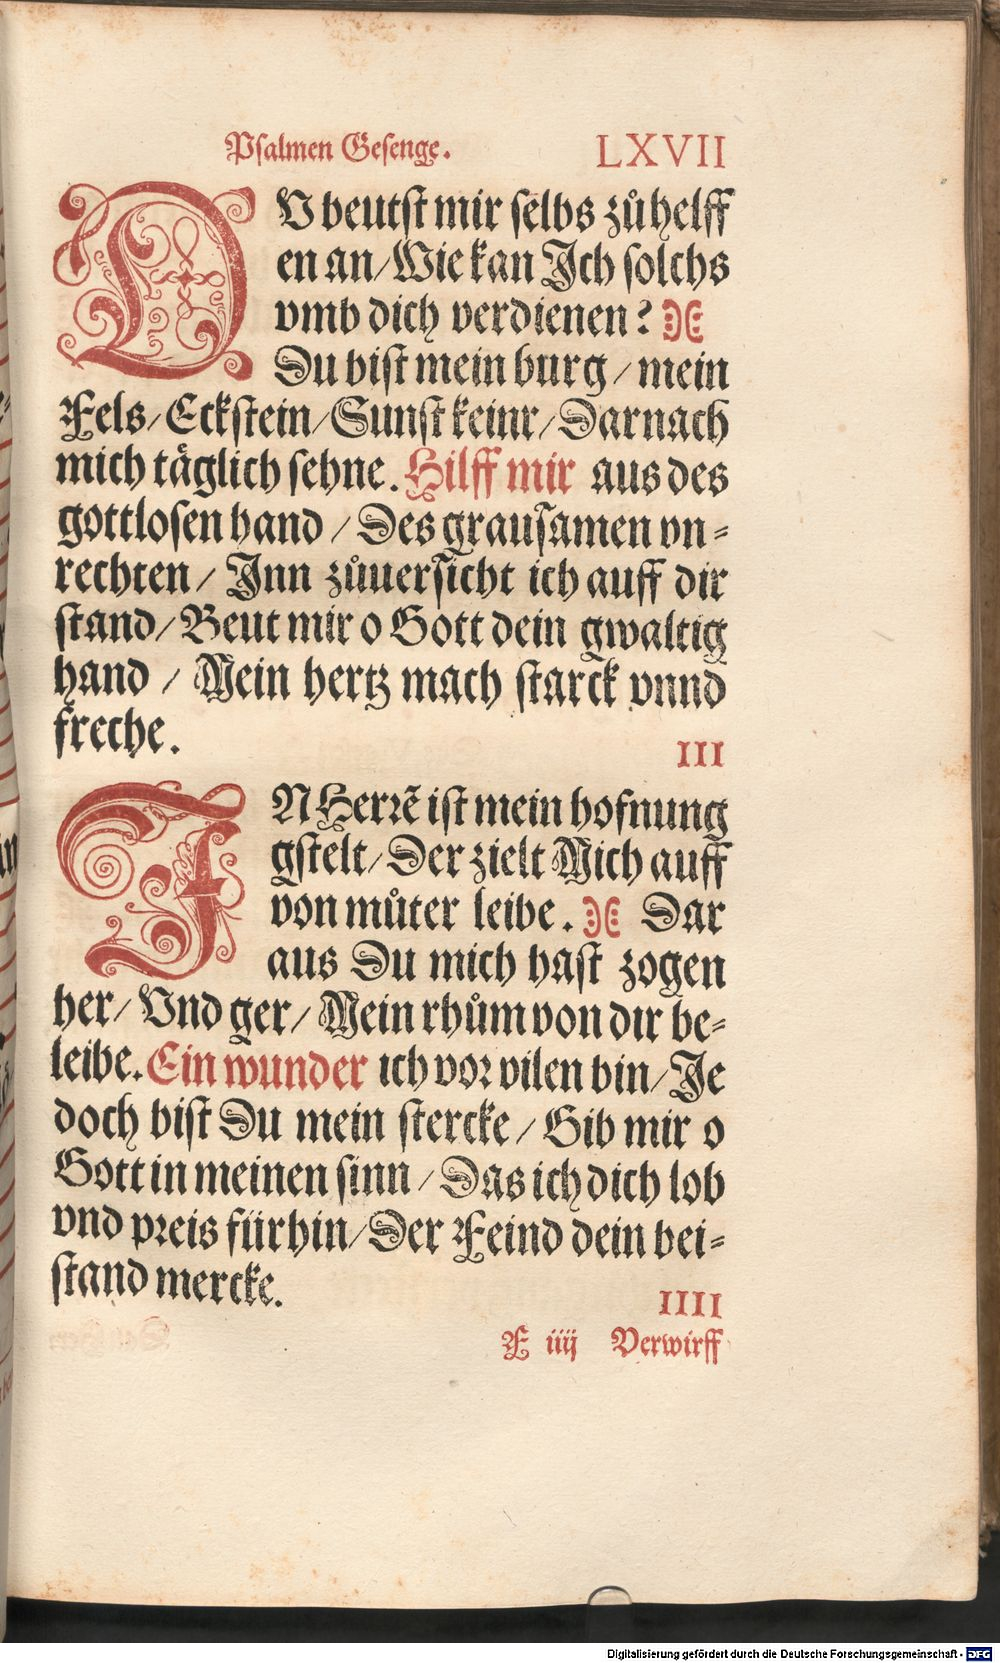 Psalmen Gesenge. LXVII
DV beutst mir selbs zůhelff
en an/Wie kan Ich solchs
vmb dich verdienen?
Du bist mein burg/mein
Fels/Eckstein/Sunst keinr/Darnach
mich täglich sehne. Hilff mir aus des
gottlosen hand/Des grausamen vn⸗
rechten/Inn zůuersicht ich auff dir
stand/Beut mir o Gott dein gwaltig
hand/Mein hertz mach starck vnnd
freche.
III
IN Herrẽ ist mein hofnung
gstelt/Der zielt Mich auff
von můter leibe. Dar
aus Du mich hast zogen
her/Vnd ger/Mein rhům von dir be⸗
leibe. Ein wunder ich vor vilen bin/Je
doch bist Du mein stercke/Gib mir o
Gott in meinen sinn/Das ich dich lob
vnd preis fürhin/Der Feind dein bei⸗
stand mercke.
IIII
F iiij Verwirff
Digitalisierung gefördert durch die Deutsche Forschungsgemeinschaft - DFG